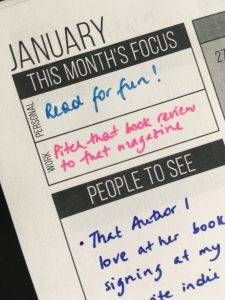 JANUARY
THIS MONTH'S FOCUS
PERSONAL
Read for fun!
WORK
Pitch that book review
to that magazine
PEOPLE TO SEE
• That Author I
love at her book
signing at my
indie
27